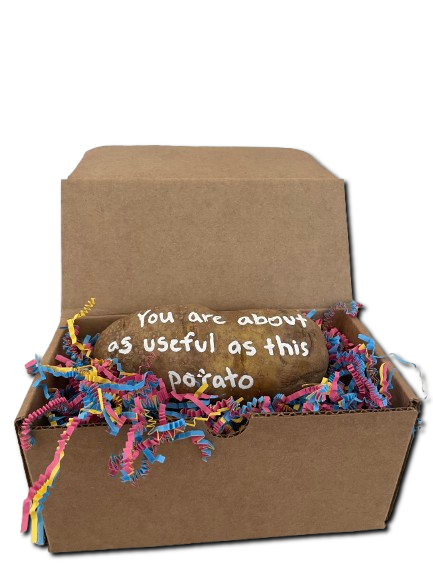 You are about
as useful as this
potato